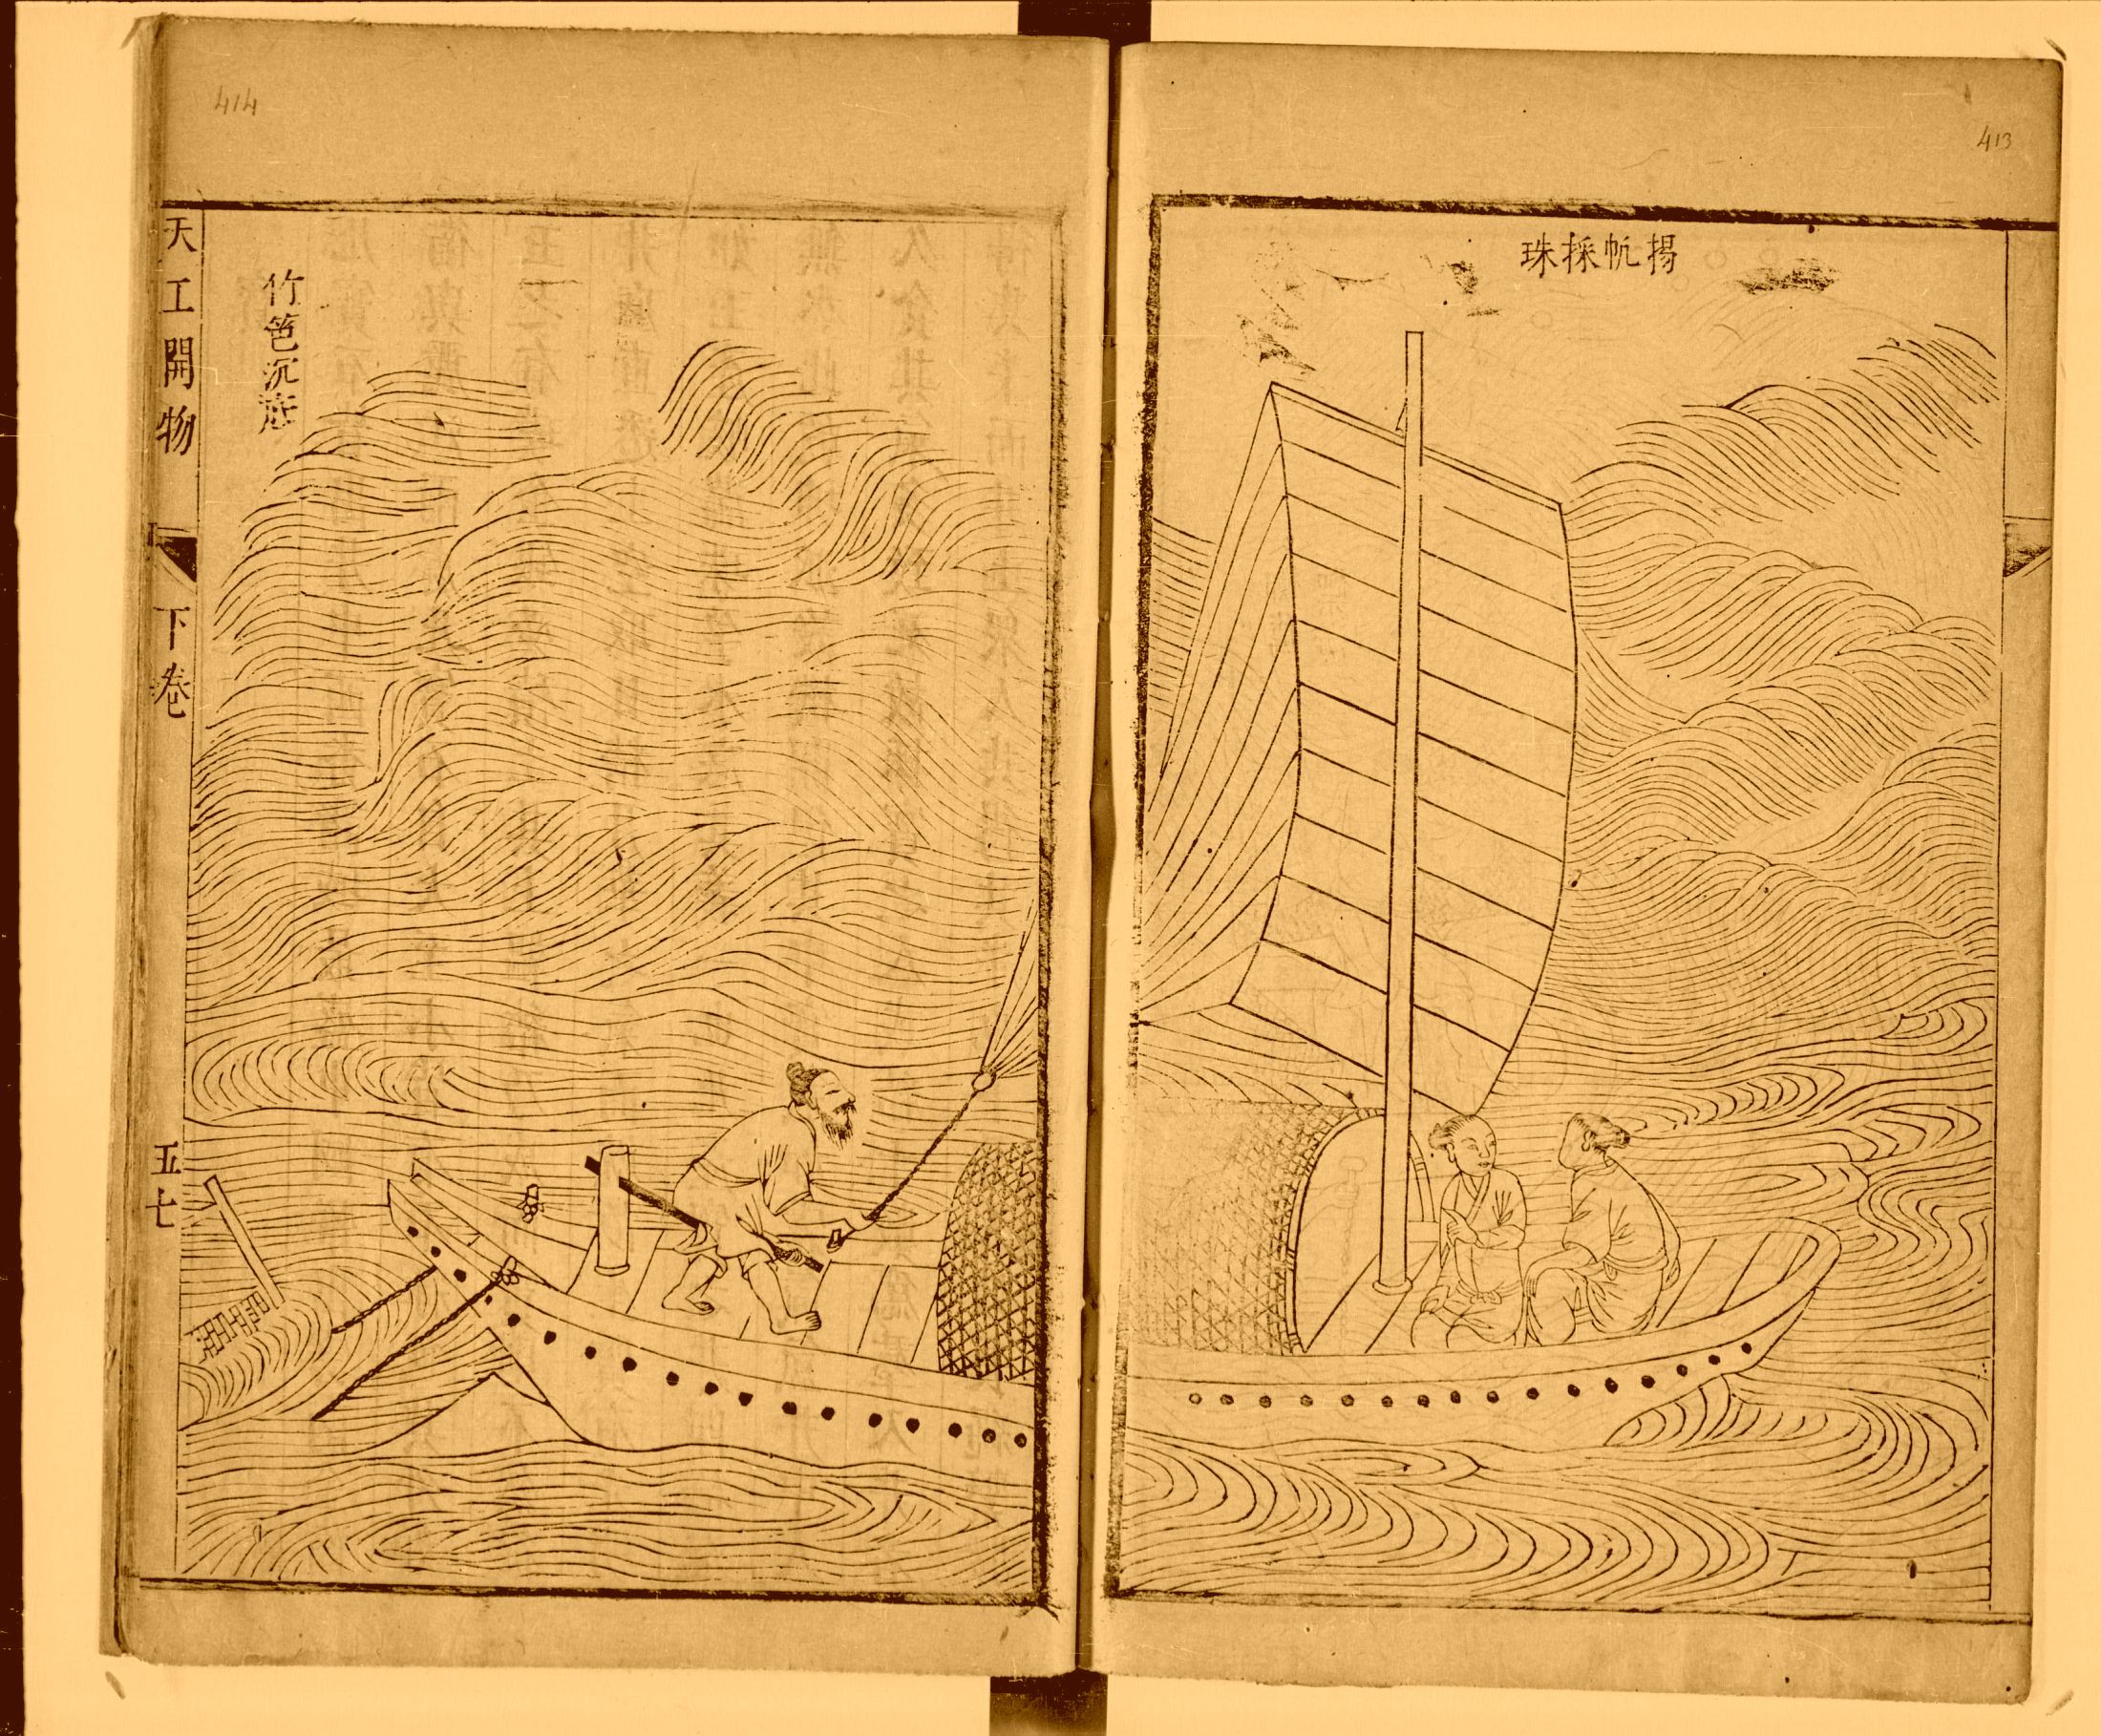 413
揚帆採珠
414
竹笆沉底
天工開物
下卷
五七